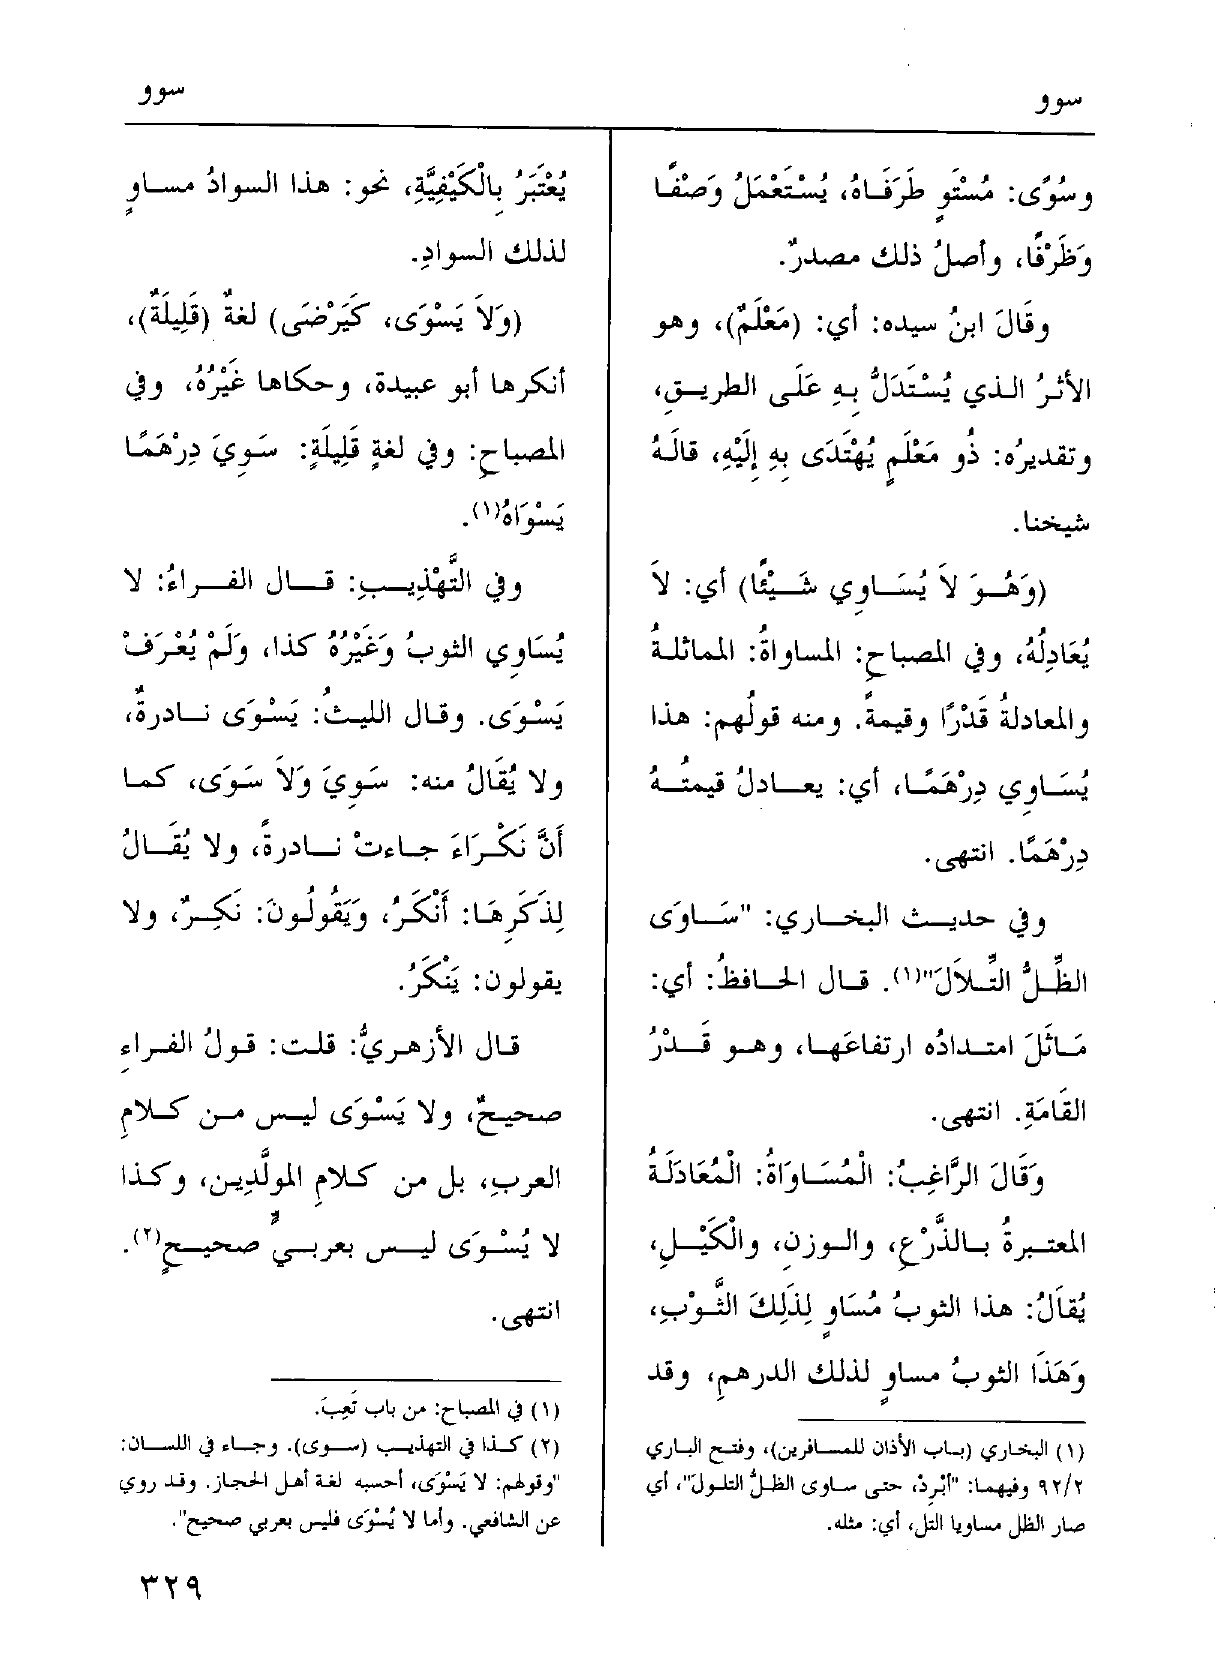 سوو
سوو
وسُوًى: مُسْتَوٍ طَرَفَاهُ، يُسْتَعْمَلُ وَصْفًا
وَظَرْفًا، وأصلُ ذلك مصدرٌ.
وقَالَ ابنُ سيده: أي: (مَعْلَمٌ)، وهو
الأثرُ الذي يُسْتَدَلُّ بِهِ عَلَى الطريقِ،
وتقديرُه: ذُو مَعْلَمٍ يُهْتَدَى بِهِ إِلَيْهِ، قالَهُ
شيخنا.
(وَهُوَ لاَ يُسَاوِي شَيْئًا) أي: لاَ
يُعَادِلُهُ، وفي المصباحِ: المساواةُ: المماثلةُ
والمعادلةُ قَدْرًا وقيمةً. ومنه قولُهم: هذا
يُسَاوِي دِرْهَمًا، أي: يعادلُ قيمتُهُ
دِرْهَمًا. انتهى.
وفي حديث البخاري: "سَاوَى
الظِّلُّ التِّلاَلَ"(١). قال الحافظُ: أي:
مَاثَلَ امتدادُه ارتفاعَها، وهو قَدْرُ
القَامَةِ. انتهى.
وَقَالَ الرَّاغِبُ: الْمُسَاوَاةُ: الْمُعَادَلَةُ
المعتبرةُ بالذَّرْعِ، والوزنِ، والْكَيْلِ،
يُقاَلُ: هذا الثوبُ مُسَاوٍ لِذَلِكَ الثَّوْبِ،
وَهَذَا الثوبُ مساوٍ لذلك الدرهمِ، وقد
(١) البخاري (باب الأذان للمسافرين)، وفتح الباري
٩٢/٢ وفيهما: "أَبْرِدْ، حتى ساوى الظلُّ التلولَ"، أي
صار الظل مساويا التل، أي: مثله.
يُعْتَبَرُ بِالْكَيْفِيَّةِ، نحو: هذا السوادُ مساوٍ
لذلك السوادِ.
(ولاَ يَسْوَى، كَيَرْضَى) لغةٌ (قَلِيلَةٌ)،
أنكرها أبو عبيدة، وحكاها غَيْرُهُ، وفي
المصباحِ: وفي لغةٍ قَلِيلَةٍ: سَوِيَ دِرْهَمًا
يَسْوَاهُ(١).
وفي التَّهْذِيبِ: قال الفراءُ: لا
يُسَاوِي الثوبُ وَغَيْرُهُ كذا، ولَمْ يُعْرَفْ
يَسْوَى. وقال الليثُ: يَسْوَى نادرةٌ،
ولا يُقَالُ منه: سَوِيَ وَلاَ سَوَى، كما
أَنَّ نَكْرَاءَ جاءتْ نادرةً، ولا يُقَالُ
لِذَكَرِهَا: أَنْكَرُ، وَيَقُولُونَ: نَكِرٌ، ولا
يقولون: يَنْكَرُ.
قال الأزهريُّ: قلت: قولُ الفراءِ
صحيحٌ، ولا يَسْوَى ليس من كلامِ
العربِ، بل من كلامِ المولَّدين، وكذا
لا يُسْوَى ليس بعربيٍّ صحيحٍ(٢).
انتهى.
(١) في المصباح: من باب تَعِبَ.
(٢) كذا في التهذيب (سوى). وجاء في اللسان:
"وقولهم: لا يَسْوَى، أحسبه لغة أهل الحجاز. وقد روي
عن الشافعي. وأما لا يُسْوَى فليس بعربي صحيح".
٣٢٩